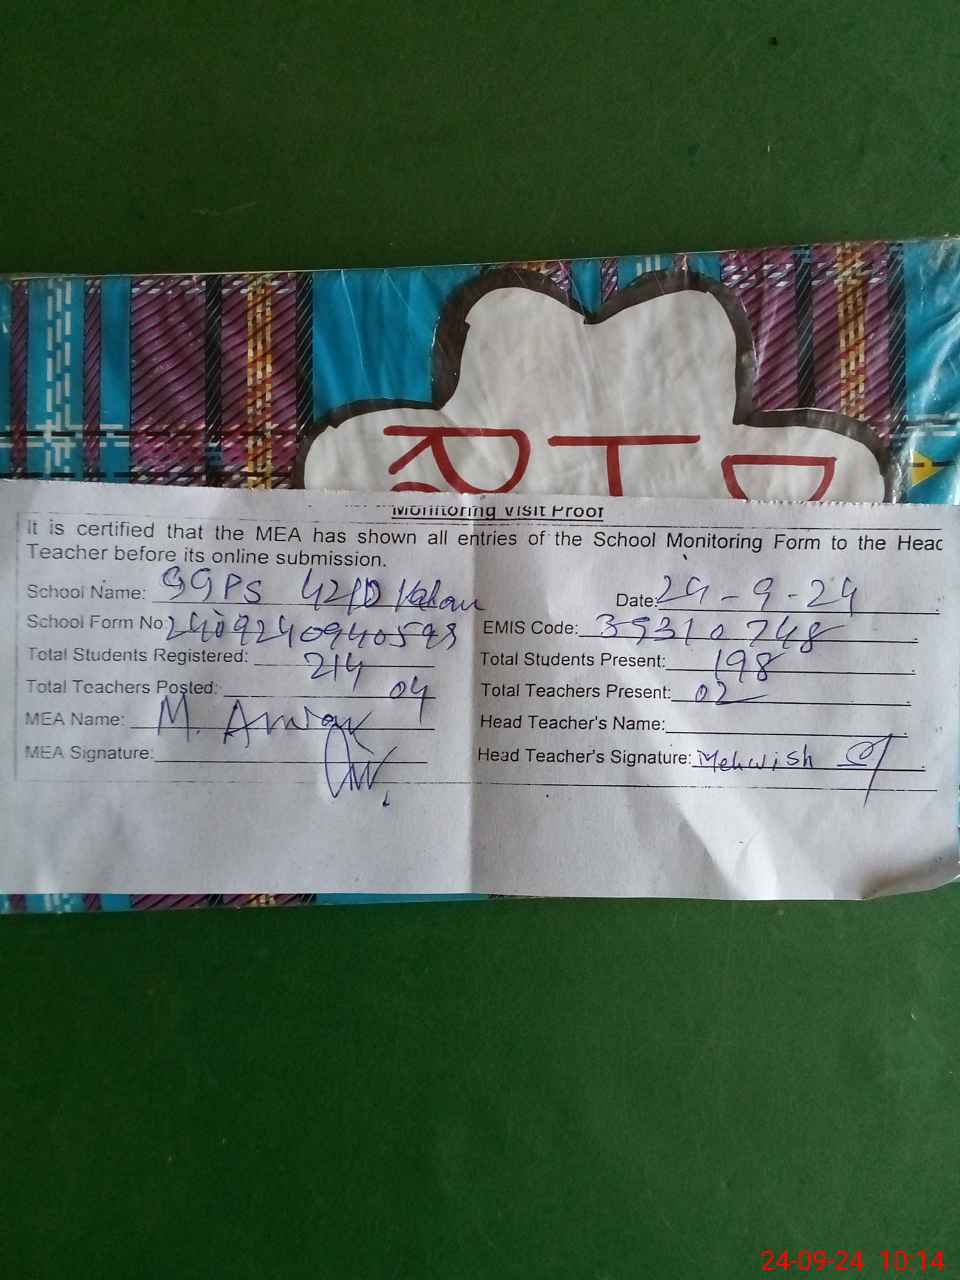 Monitoring Visit Proof
It is certified that the MEA has shown all entries of the School Monitoring Form to the Head
Teacher before its online submission.
School Name: GGPS 42/D Kalan Date: 24-9-24
School Form No: 240924094059 EMIS Code: 39310748
Total Students Registered: 214 Total Students Present: 198
Total Teachers Posted: 04 Total Teachers Present: 02
MEA Name: M. Anwar Head Teacher's Name:
MEA Signature: Head Teacher's Signature: Mehwish
24-09-24 10:14